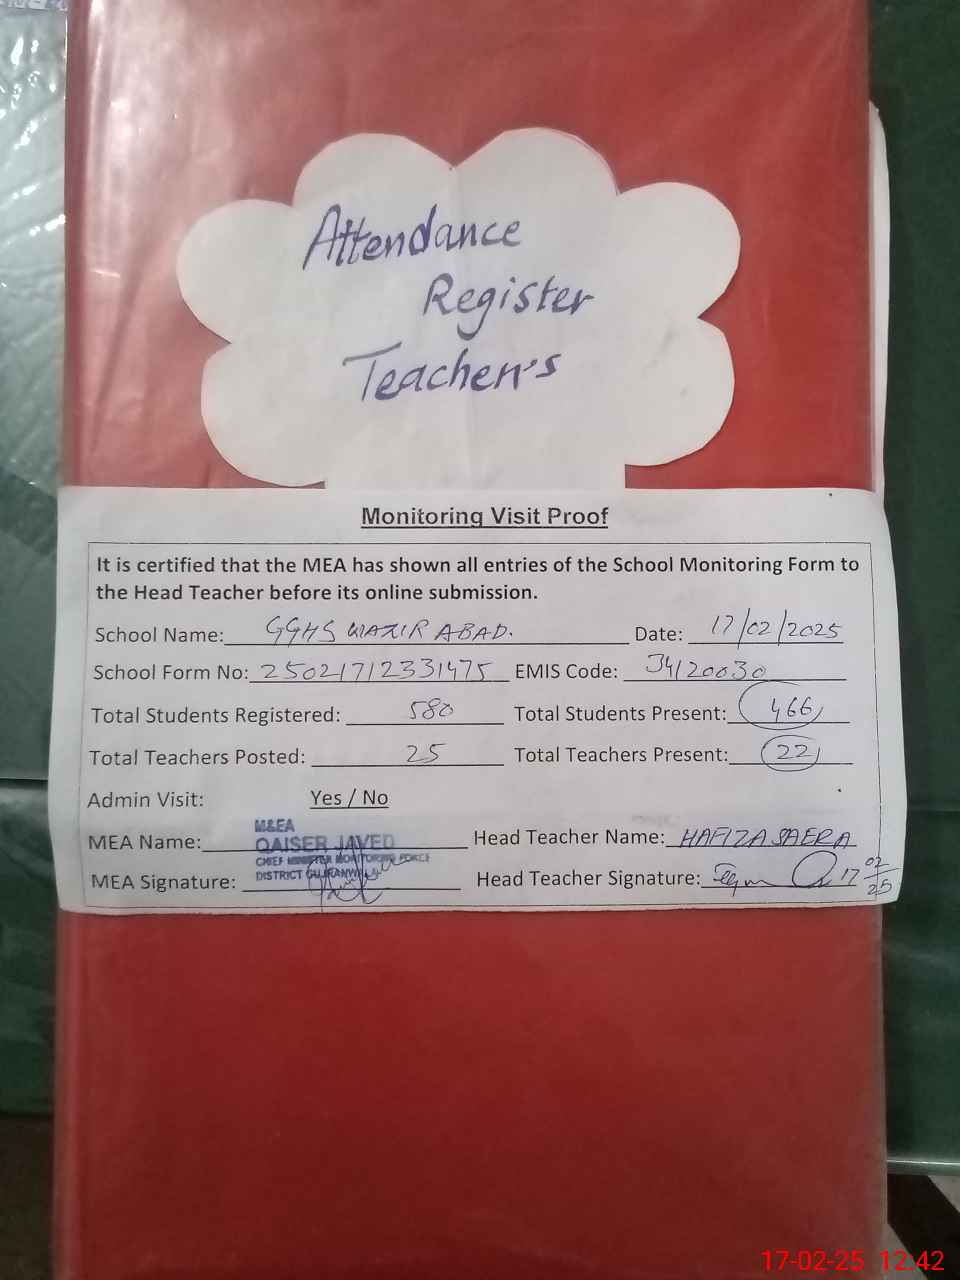 Attendance
Register
Teacher's
Monitoring Visit Proof
It is certified that the MEA has shown all entries of the School Monitoring Form to
the Head Teacher before its online submission.
School Name: GGHS WAZIR ABAD. Date: 17/02/2025
School Form No: 25021712331475 EMIS Code: 34120030
Total Students Registered: 580 Total Students Present: 466
Total Teachers Posted: 25 Total Teachers Present: 22
Admin Visit: Yes / No
M&EA
MEA Name: QAISER JAVED Head Teacher Name: HAFIZA SAERA
CHIEF MINISTER MONITORING FORCE
MEA Signature: DISTRICT GUJRANWALA Head Teacher Signature: 17 02/25
17-02-25 12:42